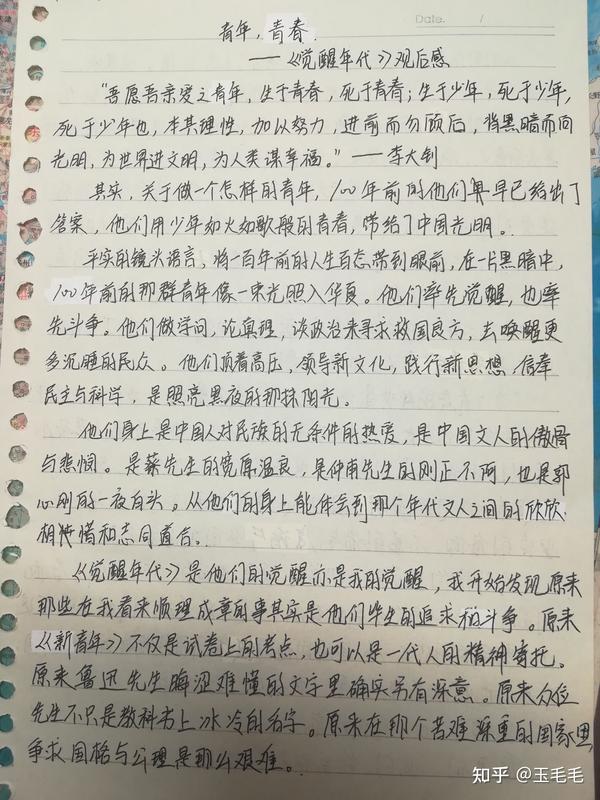 Date.        /
青年，青春
——《觉醒年代》观后感
“吾愿吾亲爱之青年，生于青春，死于青春；生于少年，
死于少年也，本其理性，加以努力，进前而勿顾后，背黑暗而向
光明，为世界进文明，为人类谋幸福。”——李大钊
其实，关于做一个怎样的青年，100年前的他们早已给出了
答案，他们用少年如火如歌般的青春，带给了中国光明。
平实的镜头语言，将一百年前的人生百态带到眼前，在一片黑暗中，
100年前的那群青年像一束光照入华夏。他们率先觉醒，也率
先斗争。他们做学问，论真理，谈政治来寻求救国良方，去唤醒更
多沉睡的民众。他们顶着高压，领导新文化，践行新思想，信奉
民主与科学，是照亮黑夜的那抹阳光。
他们身上是中国人对民族的无条件的热爱，是中国文人的傲骨
与悲悯。是蔡先生的宽厚温良，是仲甫先生的刚正不阿，也是郭
心刚的一夜白头。从他们的身上能体会到那个年代文人之间的欣欣
相惜和志同道合。
《觉醒年代》是他们的觉醒亦是我的觉醒，我开始发现原来
那些在我看来顺理成章的事其实是他们毕生的追求和斗争。原来
《新青年》不仅是试卷上的考点，也可以是一代人的精神寄托。
原来鲁迅先生晦涩难懂的文字里确实另有深意。原来众位
先生不只是教科书上冰冷的名字。原来在那个苦难深重的国家里，
争求国格与公理是那么艰难。
知乎 @玉毛毛